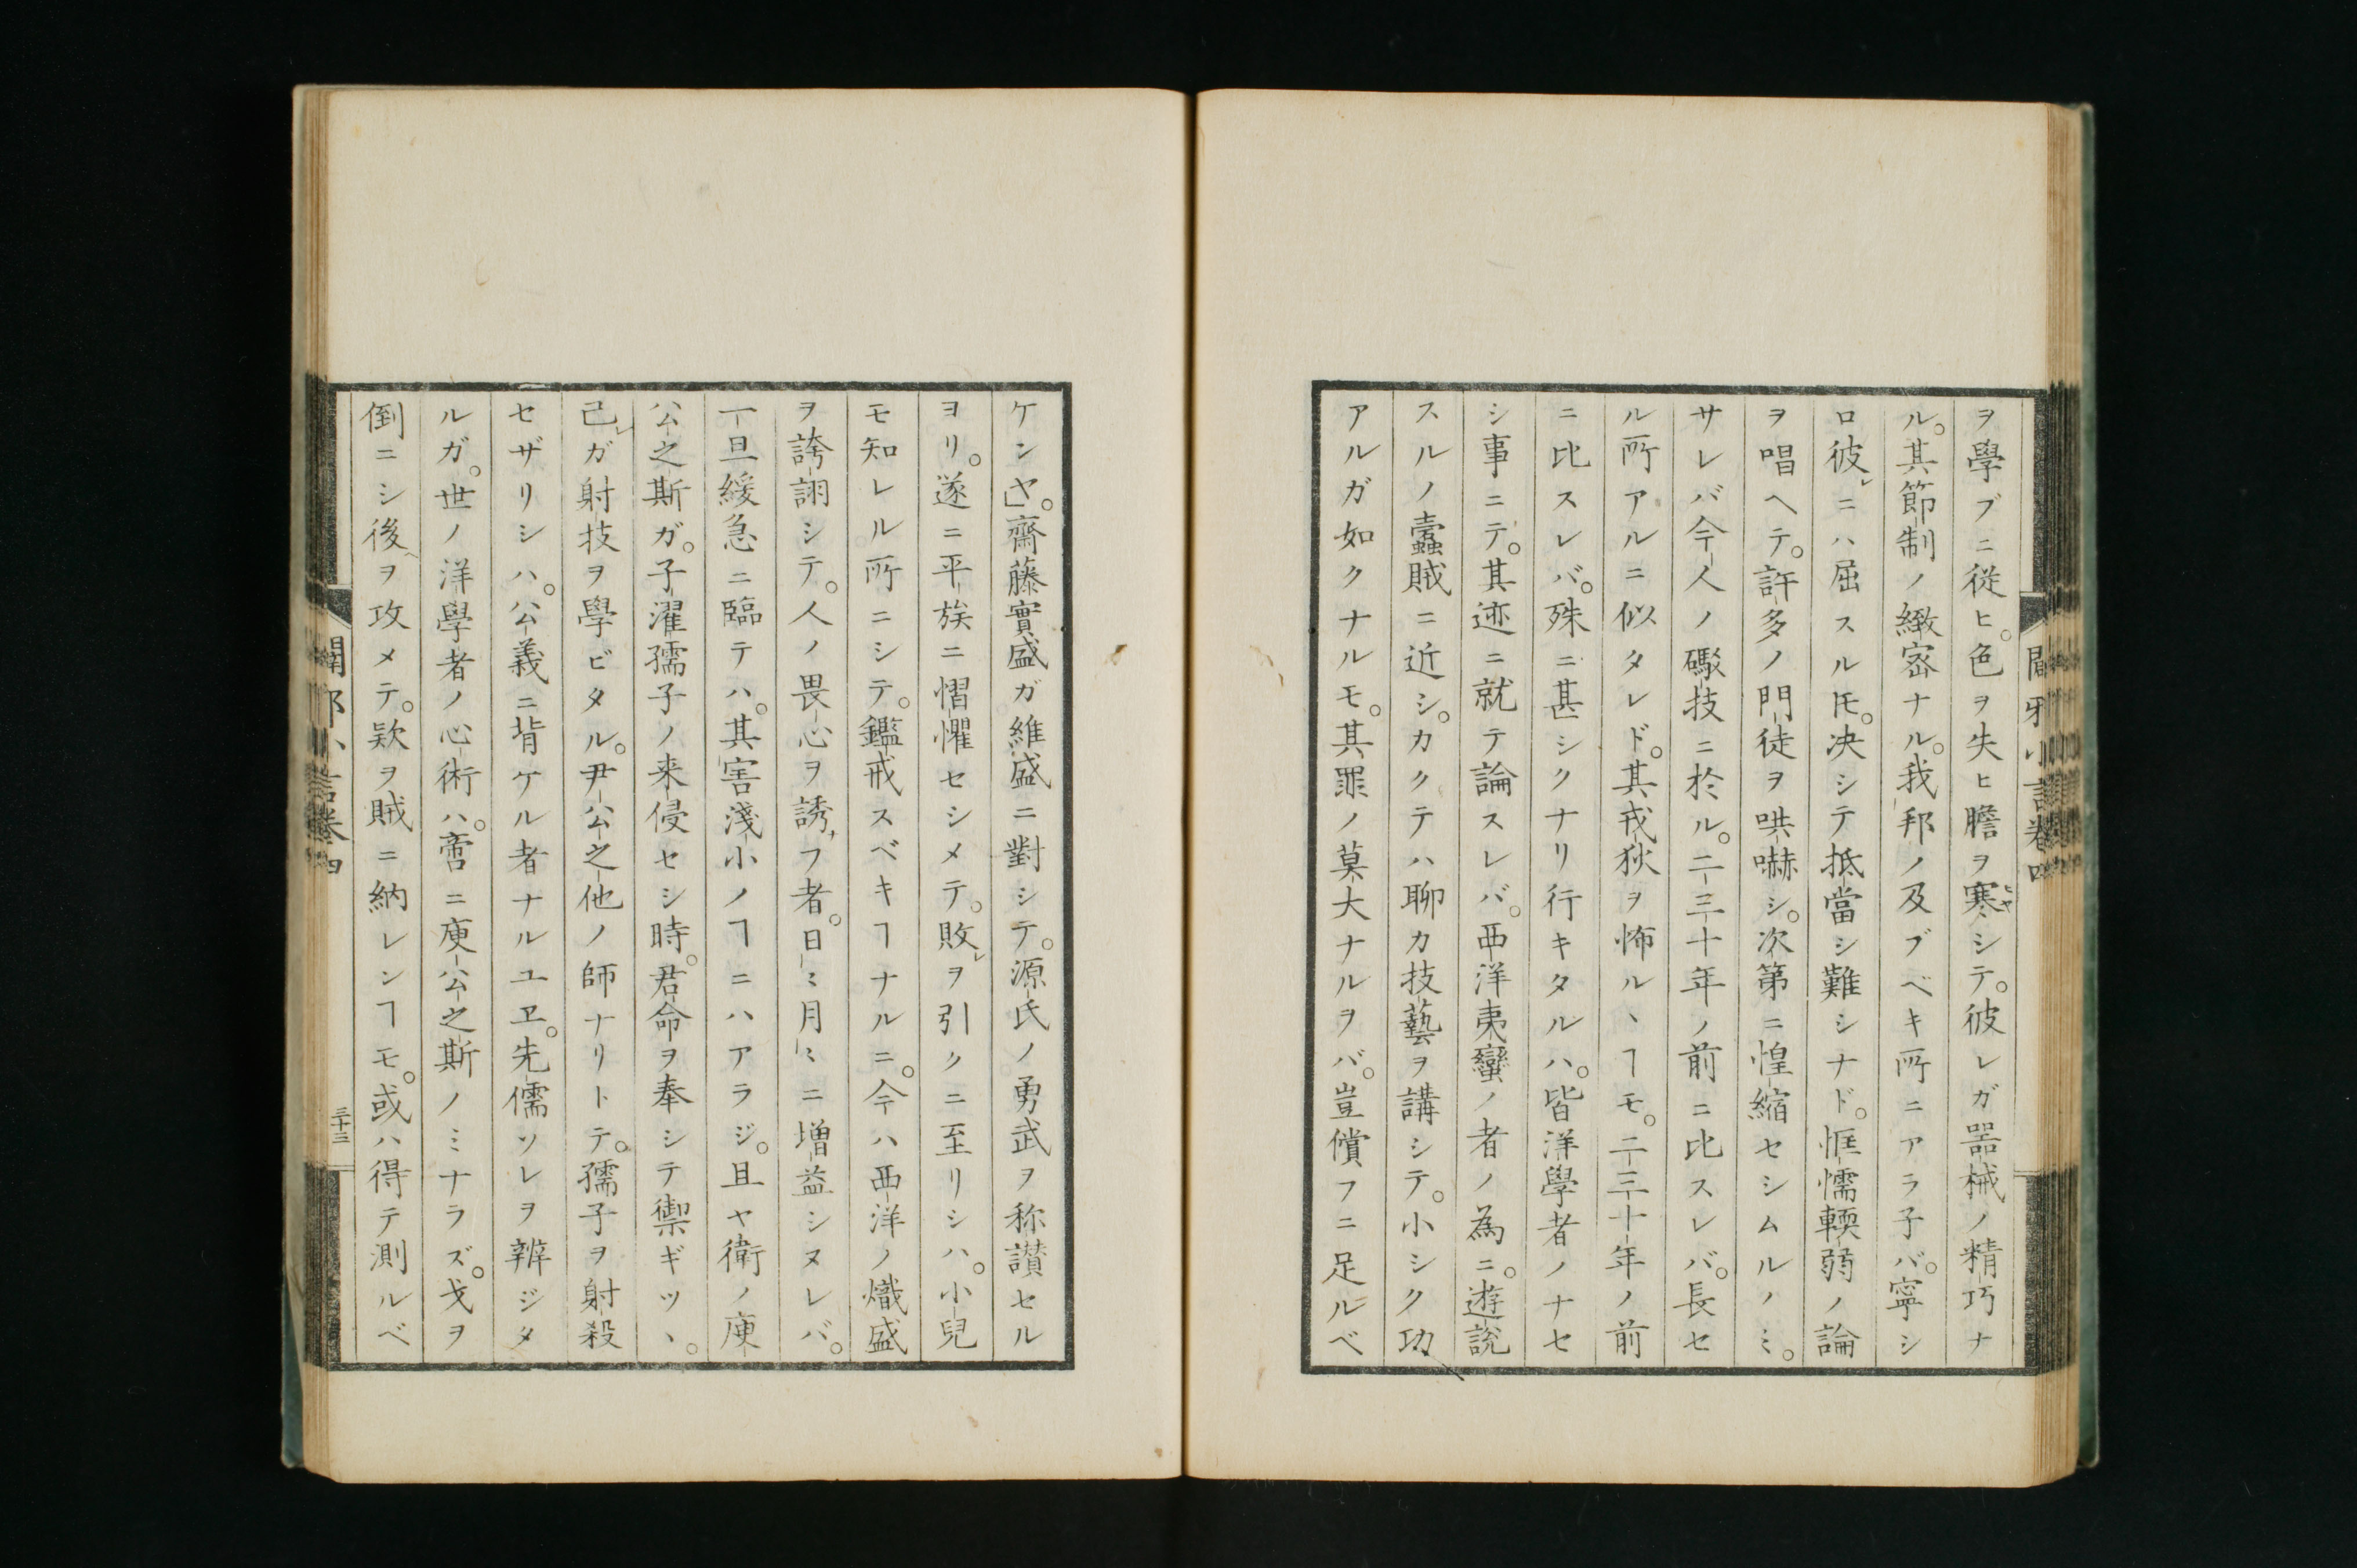 ヲ學ブニ從ヒ。色ヲ失ヒ膽ヲ寒シテ。彼レガ噐械ノ精巧ナ
ル。其節制ノ緻宻ナル。我邦ノ及ブベキ所ニアラ子バ。寧シ
ロ彼レニハ屈スルㇳモ。决シテ抵當シ難シナド。恇懦輭弱ノ論
ヲ唱ヘテ。許多ノ門徒ヲ哄嚇シ。次第ニ惶縮セシムルノミ。
サレバ今人ノ礮技ニ於ル。二三十年ノ前ニ比スレバ。長セ
ル所アルニ似タレド。其戎狄ヲ怖ルヽヿモ。二三十年ノ前
ニ比スレバ。殊ニ甚シクナリ行キタルハ。皆洋學者ノナセ
シ事ニテ。其迹ニ就テ論スレバ。西洋夷蠻ノ者ノ為ニ。遊說
スルノ蠧賊ニ近シ。カクテハ聊カ技藝ヲ講シテ。小シク功
アルガ如クナルモ。其罪ノ莫大ナルヲバ。豈償フニ足ルベ
ケンヤ」。齋藤實盛ガ維盛ニ對シテ。源氏ノ勇武ヲ称讃セル
ヨリ。遂ニ平族ニ慴懼セシメテ。敗レヲ引クニ至リシハ。小兒
モ知レル所ニシテ。鑑戒スベキヿナルニ。今ハ西洋ノ熾盛
ヲ誇詡シテ。人ノ畏心ヲ誘フ者。日ミ月ミニ増益シヌレバ。
一旦緩急ニ臨テハ。其害淺小ノヿニハアラジ。且ヤ衛ノ庾
公之斯ガ。子濯孺子ノ来侵セシ時。君命ヲ奉シテ禦ギツヽ。
己レガ射技ヲ學ビタル。尹公之他ノ師ナリトテ。孺子ヲ射殺
セザリシハ。公義ニ背ケル者ナルユヱ。先儒ソレヲ辨ジタ
ルガ。世ノ洋學者ノ心術ハ。啻ニ庾公之斯ノミナラズ。戈ヲ
倒ニシ後ヲ攻メテ。欵ヲ賊ニ納レンヿモ。或ハ得テ測ルベ
三十三